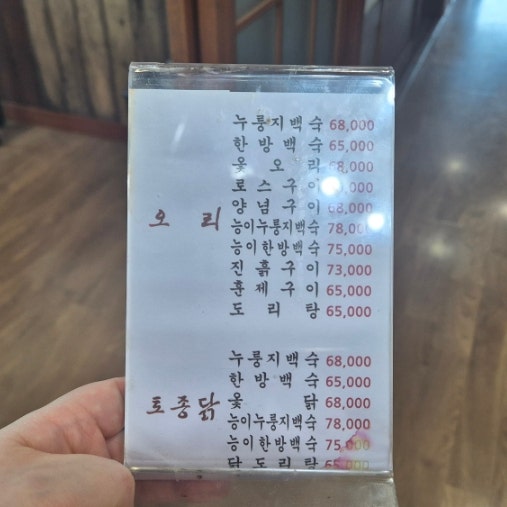 누룽지백숙 68,000
한방백숙 65,000
옻오리 68,000
로스구이
양념구이 68,000
오리
능이누룽지백숙 78,000
능이한방백숙 75,000
진흙구이 73,000
훈제구이 65,000
도리탕 65,000
누룽지백숙 68,000
한방백숙 65,000
토종닭
옻닭 68,000
능이누룽지백숙 78,000
능이한방백숙 75,000
닭도리탕 65,000